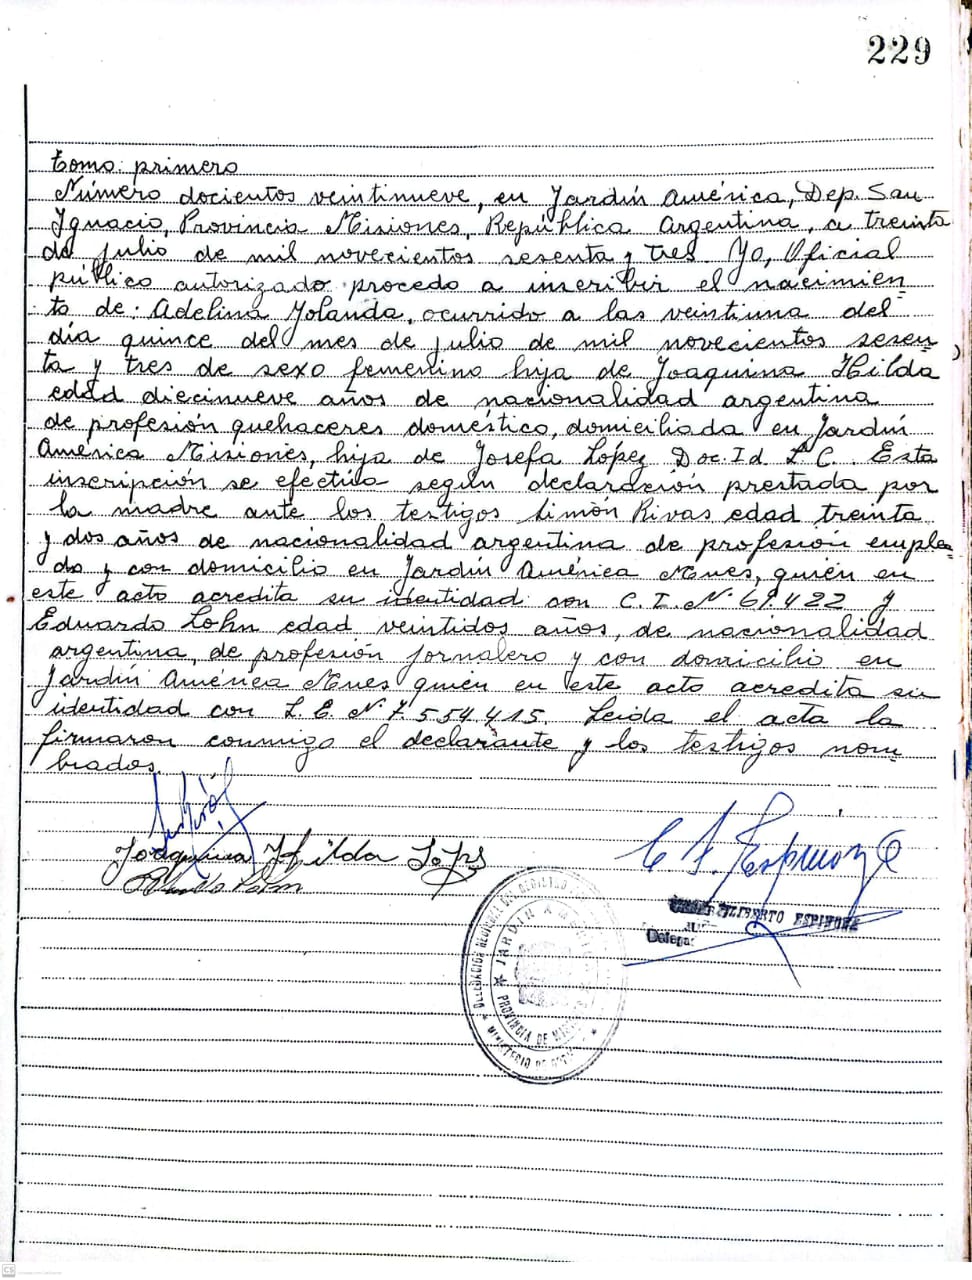 229
Tomo: primero
Número docientos veintinueve, en Jardín América, Dep. San
Ignacio, Provincia Misiones, República Argentina, a treinta
de julio de mil novecientos sesenta y tres Yo, Oficial
público autorizado procedo a inscribir el nacimien
to de: Adelina Yolanda, ocurrido a las veintiuna del
día quince del mes de julio de mil novecientos sesen
ta y tres de sexo femenino hija de Joaquina Hilda
edad diecinueve años de nacionalidad argentina
de profesión quehaceres doméstico, domiciliada en Jardín
América Misiones, hija de Josefa López Doc. Id L C. Esta
inscripción se efectúa según declaración prestada por
la madre ante los testigos Simón Rivas edad treinta
y dos años de nacionalidad argentina de profesión emplea
do y con domicilio en Jardín América Mnes, quién en
este acto acredita su identidad con C. I. Nº 69.422 y
Eduardo Lohn edad veintidos años, de nacionalidad
argentina, de profesión jornalero y con domicilio en
Jardín América Mnes quién en este acto acredita su
identidad con L. E. Nº 7.554.415. Leida el acta la
firmaron conmigo el declarante y los testigos nom
brados.
Joaquina Hilda Lopes
C F. Espinoza
FILIBERTO ESPINOZA
Delega
DELEGACIÓN REGISTRO
JARDIN AMERICA
PROVINCIA DE MISIONES
MINISTERIO DE
CS